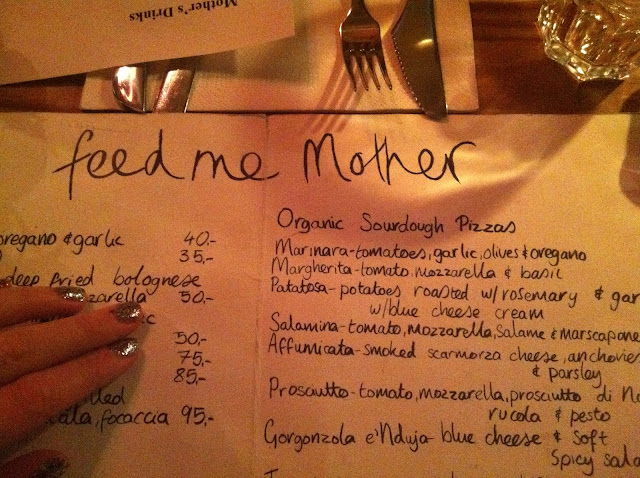 Mother's Drinks
feed me Mother
oregano & garlic 40,-
35,-
deep fried bolognese
mozzarella 50,-
50,-
75,-
85,-
focaccia 95,-
Organic Sourdough Pizzas
Marinara-tomatoes, garlic, olives & oregano
Margherita-tomato, mozzarella & basil
Patatosa-potatoes roasted w/rosemary & gar
w/blue cheese cream
Salamina-tomato, mozzarella, Salame & Marscapone
Affumicata-smoked scarmorza cheese, anchovies
& parsley
Prosciutto-tomato, mozzarella, prosciutto di
rucola & pesto
Gorgonzola e'Nduja-blue cheese & soft
spicy sala